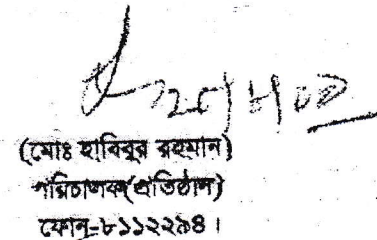 (মোঃ হাবিবুর রহমান)
পরিচালক(প্রতিষ্ঠান)
ফোন-৮১১২২৯৪।